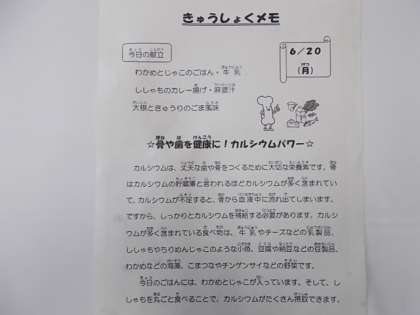 きゅうしょくメモ
6/20
(月)
今日の献立
わかめとじゃこのごはん・牛乳
ししゃものカレー揚げ・麻婆汁
大根ときゅうりのごま風味
☆骨や歯を健康に!カルシウムパワー☆
カルシウムは、丈夫な歯や骨をつくるために大切な栄養素です。骨
はカルシウムの貯蔵庫と言われるほどカルシウムが多く含まれてい
て、カルシウムが不足すると、骨から血液中に流れ出てしまいます。
ですから、しっかりとカルシウムを補給する必要があります。カルシ
ウムが多く含まれている食べ物は、牛乳やチーズなどの乳製品、
ししゃもやちりめんじゃこのような小魚、豆腐や納豆などの豆製品、
わかめなどの海藻、こまつなやチンゲンサイなどの野菜です。
今日のごはんには、わかめとじゃこが入っています。そして、し
しゃもを丸ごと食べることで、カルシウムがたくさん摂取できます。